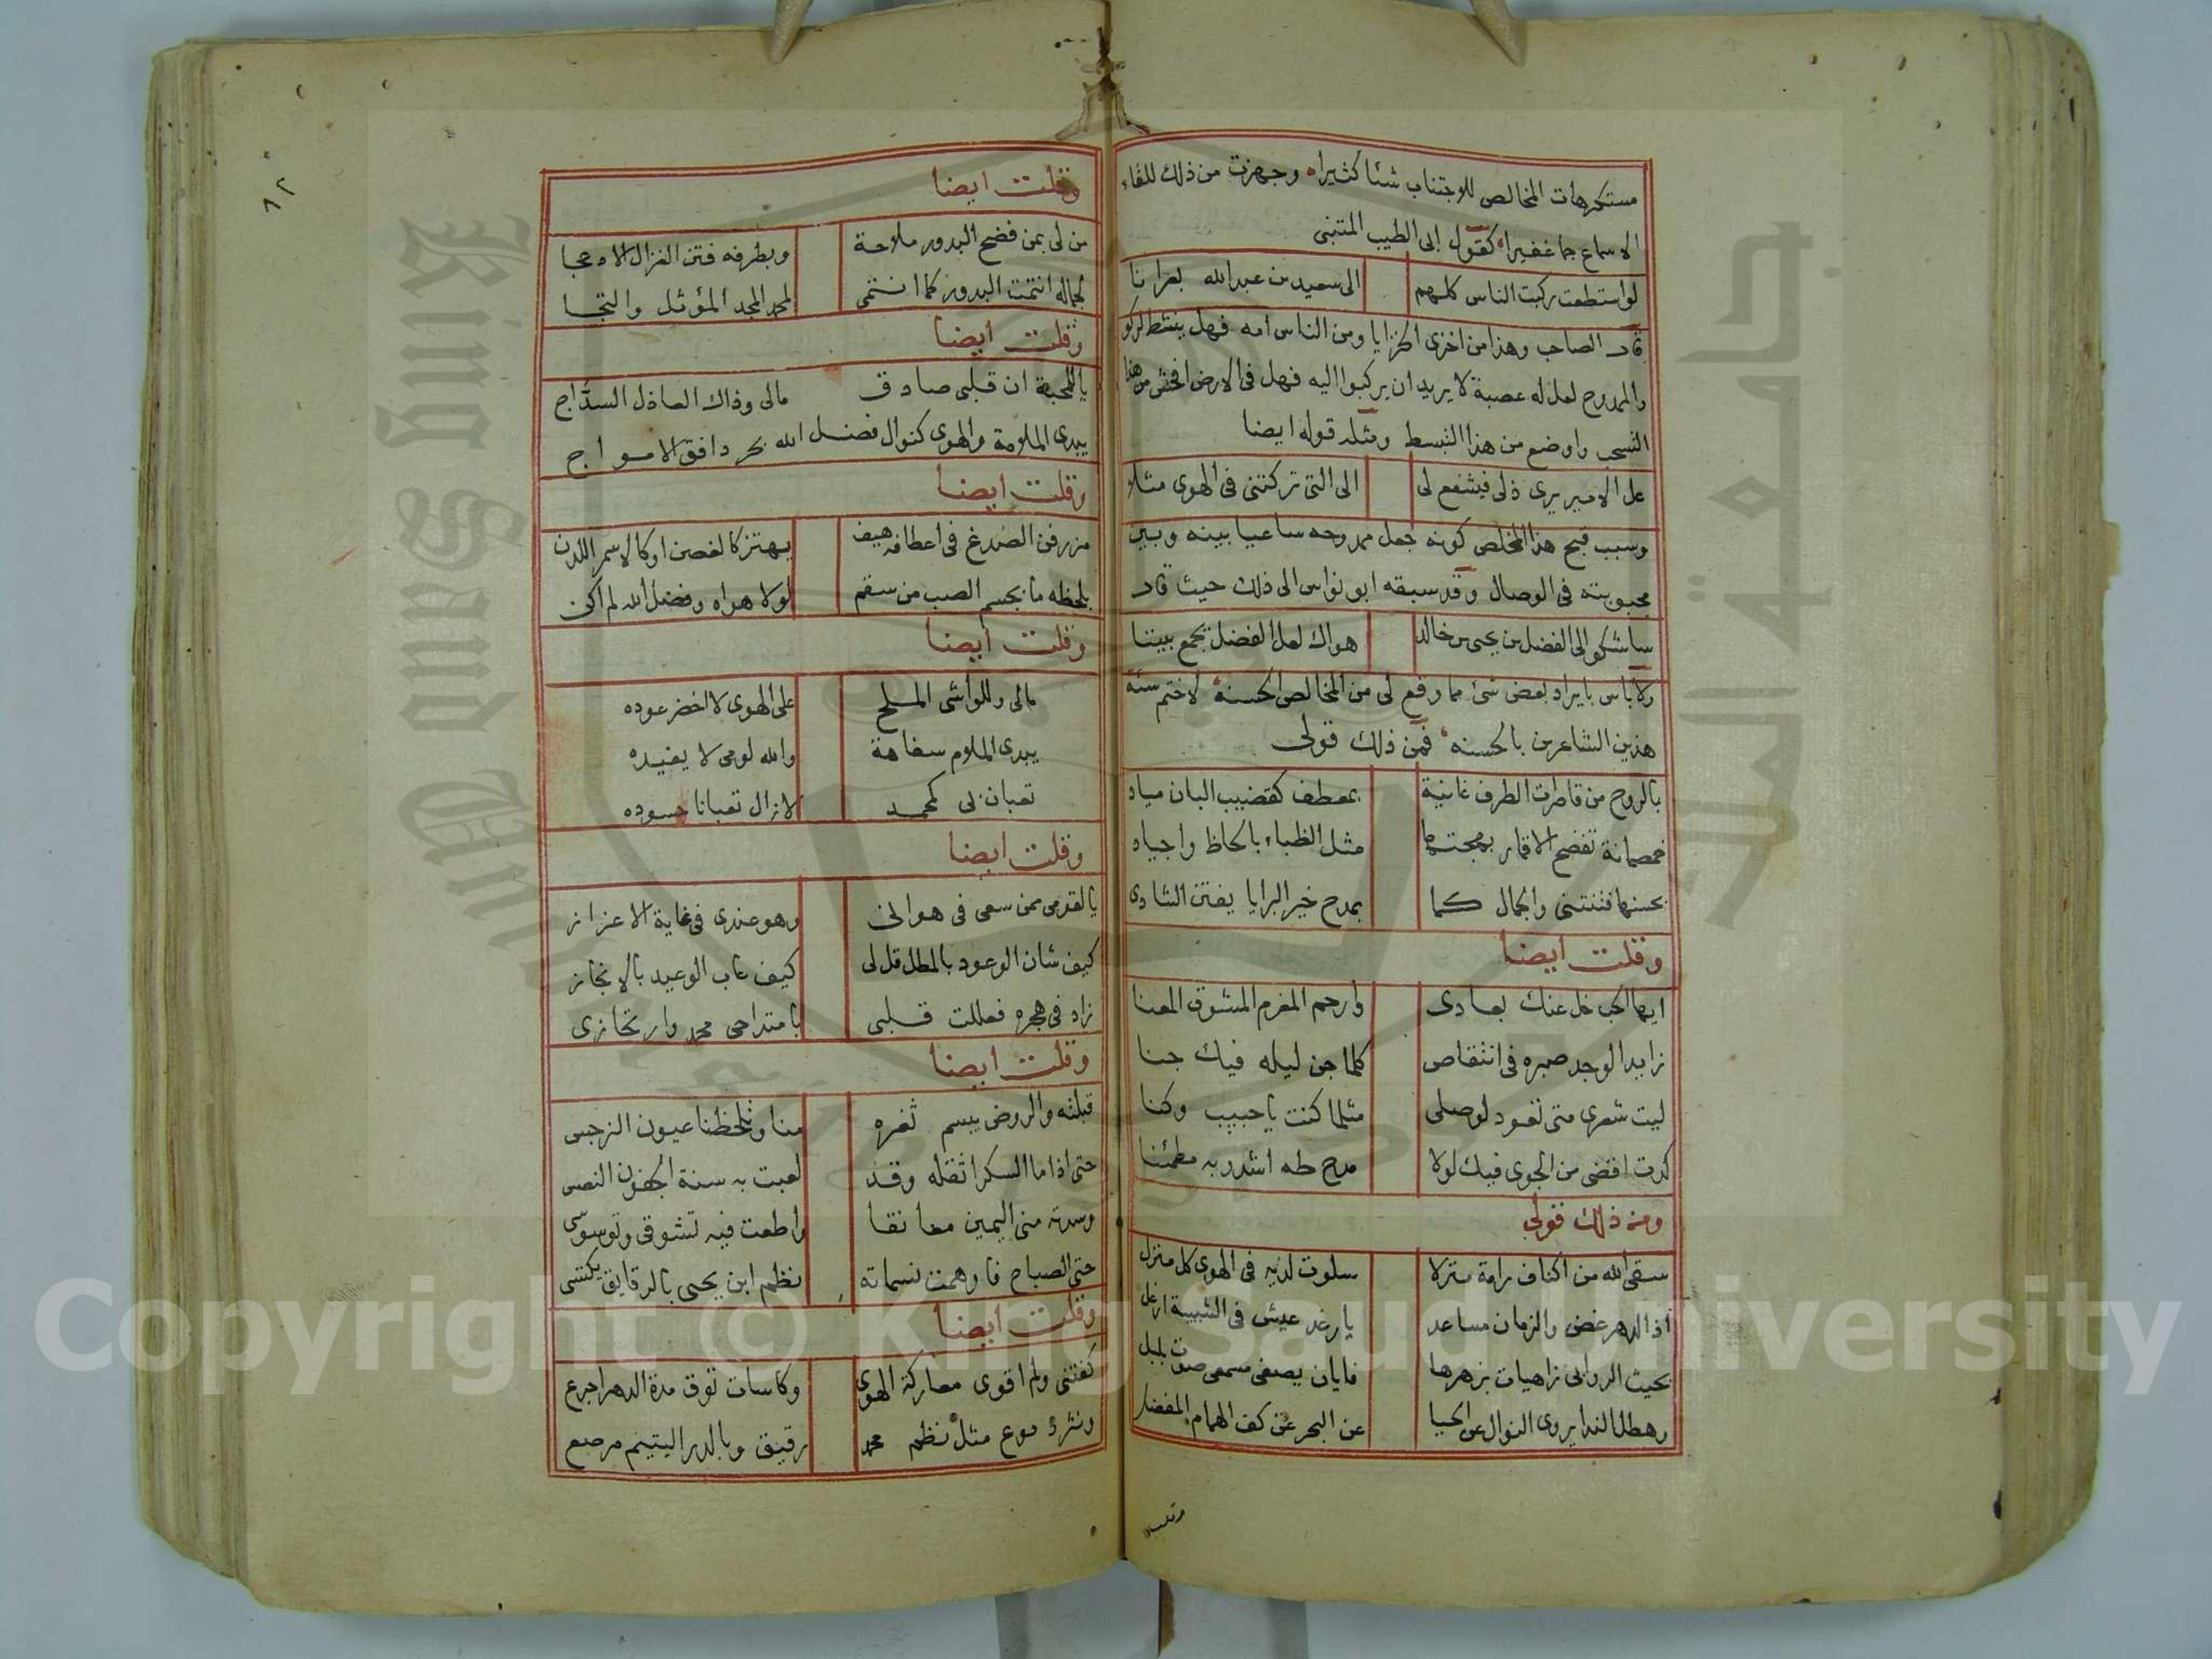 مستكرهات المخالص للاجتناب شئا كثيرا وجهزت من ذلك للقاء
الاسماع جما غفيرا كقول ابى الطيب المتنبى
لو استطعت ركبت الناس كلهم الى سعيد بن عبد الله بعرانا
قال الصاحب وهذا من اخزى الخزايا ومن الناس امه فهل ينشط لركو
والممدوح لعل له عصبة لا يريد ان يركبوا اليه فهل فى الارض افحش من هذا
التسحب واوضع من هذا التبسط ومثله قوله ايضا
عل الامير يرى ذلى فيشفع لى الى التى تركتنى فى الهوى مثلا
وسبب قبح هذا المخلص كونه جعل ممدوحه ساعيا بينه وبين
محبوبته فى الوصال وقد سبقه ابو نواس الى ذلك حيث قال
ساشكو الى الفضل بن يحيى بن خالد هواك لعل الفضل يجمع بيننا
ولا باس بايراد بعض شئ مما وقع لى من المخالص الحسنة لاختم سئة
هذين الشاعرين بالحسنه فمن ذلك قولى
بالروح من قاصرات الطرف غانية بمعطف كقضيب البان مياد
خمصانة تفضح الاقمار بهجتها مثل الظباء بالحاظ واجياد
بحسنها فتنتنى والجمال كما بمدح خير البرايا يفتن الشادى
وقلت ايضا
ايها الحب خل عنك بعادى وارحم المغرم المشوق المعنا
زايد الوجد صبره فى انتقاص كلما جن ليله فيك جنا
ليت شعرى متى تعود لوصلى مثلما كنت يا حبيب وكنا
كدت اقضى من الجوى فيك لولا مدح طه اشدو به مطمئنا
ومن ذلك قولى
سقى الله من اكناف رامة منزلا سلوت لديه فى الهوى كل منزل
اذ الدهر غض والزمان مساعد يا رغد عيش فى الشبيبة ارغل
بحيث الروابى زاهيات بزهرها فايان يصغى مسمعى صوت بلبل
وهطل الندا يروى النوال عن الحيا عن البحر عن كف الهمام المفضل
وقلت ايضا
من لى بمن فضح البدور ملاحة وبطرفه فتن الغزال الادعجا
لجماله انتمت البدور كما انتمى لمحمد المجد المؤثل والتجا
وقلت ايضا
يا للمحبة ان قلبى صادق مالى وذاك العاذل السداج
يبدى الملامة والهوى كنوال فضل الله بحر دافق الامواج
وقلت ايضا
مزرفن الصدغ فى اعطافه هيف يهتز كالغصن او كالاسمر اللدن
بلحظه ما بجسم الصب من سقم لولا هواه وفضل الله لم اكن
وقلت ايضا
مالى وللواشى الملح على الهوى لا اخضر عوده
يبدى الملام سفاهة والله لومى لا يفيده
تعبان بى كمحمد لا زال تعبانا حسوده
وقلت ايضا
يا لقومى من سعى فى هوانى وهو عندى فى غاية الاعزاز
كيف شان الوعود بالمطل قل لى كيف عاب الوعيد بالانجاز
زاد فى هجره فعللت قلبى بامتداحى محمد وارتجازى
وقلت ايضا
قبلته والروض يبسم ثغره منا وتلحظنا عيون النرجس
حتى اذا ما السكر اثقله وقد لعبت به سنة الجفون النعس
وسدته منى اليمين معانقا واطعت فيه تشوقى وتوسوسى
حتى الصباح فارهمت نسماته بنظم ابن يحيى بالرقايق يكتسى
وقلت ايضا
كفتنى ولم اقوى معاركة الهوى وكاسات توق مدة الدهر اجرع
ونثر دموع مثل نظم محمد رقيق وبالدر اليتيم مرصع
٨٢
Copyright © King Saud University
King Saud University
جامعة الملك